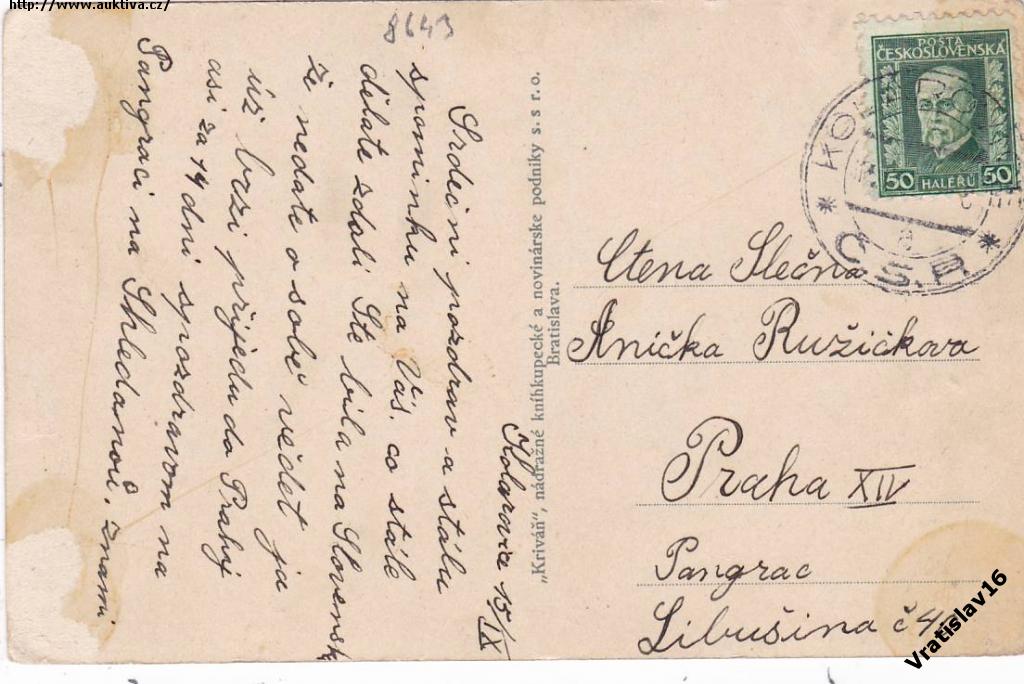 http://www.auktiva.cz/
8643
Kolarovice 15/IX
Srdečni pozdrav a stálu
spominku na Vás, co stále
děláte zdali Ste bila na Slovensku
že nedate o sobě vědet ja
už brzi přijedu do Prahy
asi za 14 dni spozdravom na
Pangraci na Shledanoú, znami
„Kriváň“, nádražné kníhkupecké a novinárske podniky s. s r. o.
Bratislava.
POŠTA
ČESKOSLOVENSKÁ
50 HALÉŘŮ 50
Č.S.R.
Ctena Slečna
Anička Ružičkova
Praha XIV
Pangrac
Libušina č 4
Vratislav16